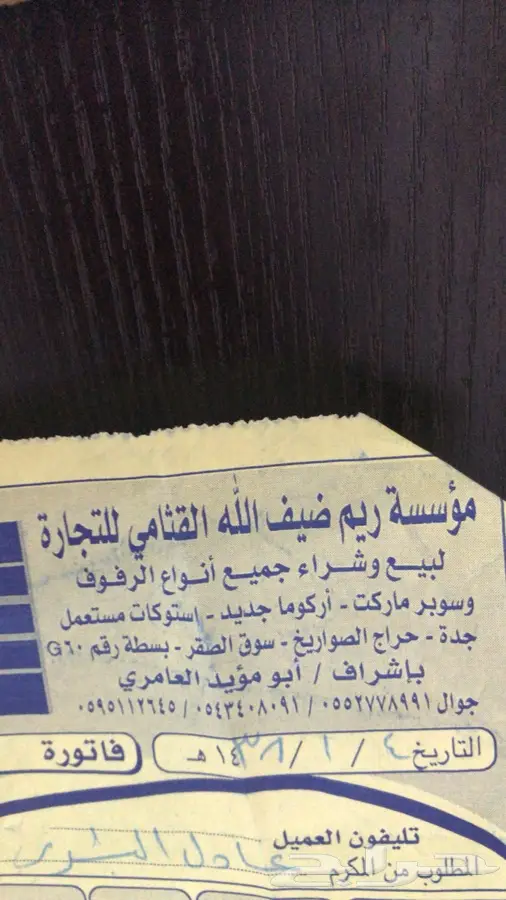 مؤسسة ريم ضيف الله القثامي للتجارة
لبيع وشراء جميع أنواع الرفوف
وسوبر ماركت - أركوما جديد - إستوكات مستعمل
جدة - حراج الصواريخ - سوق الصقر - بسطة رقم G٦٠
بإشراف / أبو مؤيد العامري
جوال ٠٥٥٢٧٧٨٩٩١ / ٠٥٤٣٤٠٨٠٩١ / ٠٥٩٥١١٢٦٤٥
التاريخ ٤ / ١ / ١٤٣٨هـ
فاتورة
تليفون العميل
المطلوب من المكرم عادل